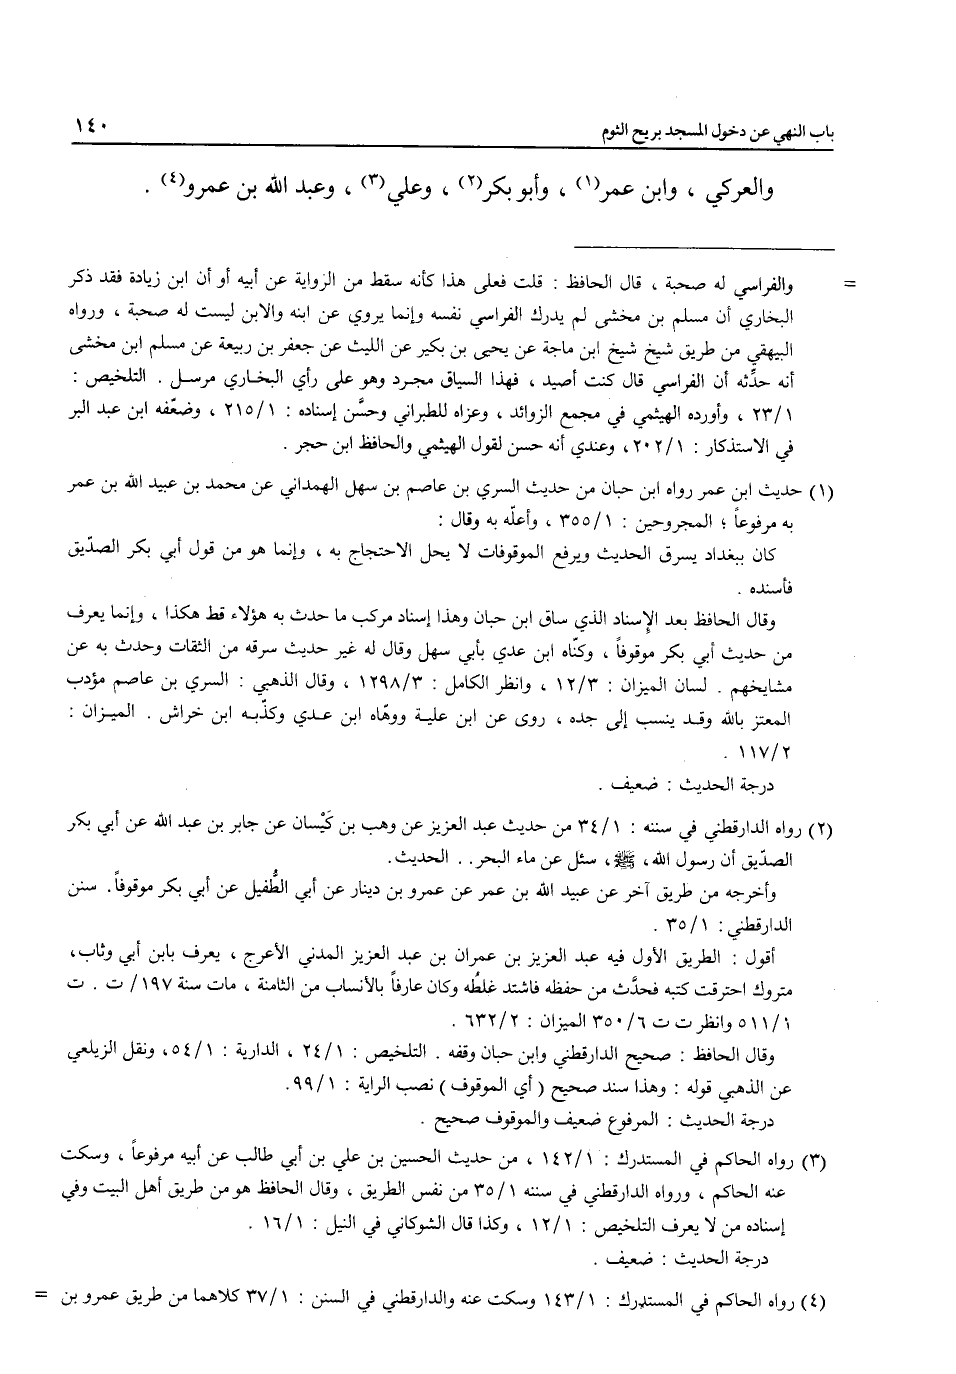 باب النهي عن دخول المسجد بريح الثوم ١٤٠
والعركي ، وابن عمر(١) ، وأبو بكر(٢) ، وعلي(٣) ، وعبد الله بن عمرو(٤) .
= والفراسي له صحبة ، قال الحافظ : قلت فعلى هذا كأنه سقط من الرواية عن أبيه أو أن ابن زيادة فقد ذكر
البخاري أن مسلم بن مخشى لم يدرك الفراسي نفسه وإنما يروي عن ابنه والابن ليست له صحبة ، ورواه
البيهقي من طريق شيخ شيخ ابن ماجة عن يحيى بن بكير عن الليث عن جعفر بن ربيعة عن مسلم ابن مخشى
أنه حدّثه أن الفراسي قال كنت أصيد ، فهذا السياق مجرد وهو على رأي البخاري مرسل . التلخيص :
٢٣/١ ، وأورده الهيثمي في مجمع الزوائد ، وعزاه للطبراني وحسَّن إسناده : ٢١٥/١ ، وضعّفه ابن عبد البر
في الاستذكار : ٢٠٢/١، وعندي أنه حسن لقول الهيثمي والحافظ ابن حجر .
(١) حديث ابن عمر رواه ابن حبان من حديث السري بن عاصم بن سهل الهمداني عن محمد بن عبيد الله بن عمر
به مرفوعاً ؛ المجروحين : ٣٥٥/١ ، وأعلّه به وقال :
كان ببغداد يسرق الحديث ويرفع الموقوفات لا يحل الاحتجاج به ، وإنما هو من قول أبي بكر الصدّيق
فأسنده .
وقال الحافظ بعد الإسناد الذي ساق ابن حبان وهذا إسناد مركب ما حدث به هؤلاء قط هكذا ، وإنما يعرف
من حديث أبي بكر موقوفاً ، وكنّاه ابن عدي بأبي سهل وقال له غير حديث سرقه من الثقات وحدث به عن
مشايخهم . لسان الميزان : ١٢/٣ ، وانظر الكامل : ١٢٩٨/٣ ، وقال الذهبي : السري بن عاصم مؤدب
المعتز بالله وقد ينسب إلى جده ، روى عن ابن علية ووهّاه ابن عدي وكذّبه ابن خراش . الميزان :
١١٧/٢ .
درجة الحديث : ضعيف .
(٢) رواه الدارقطني في سننه : ٣٤/١ من حديث عبد العزيز عن وهب بن كَيْسان عن جابر بن عبد الله عن أبي بكر
الصدّيق أن رسول الله، ﷺ، سئل عن ماء البحر. . الحديث.
وأخرجه من طريق آخر عن عبيد الله بن عمر عن عمرو بن دينار عن أبي الطُّفيل عن أبي بكر موقوفاً. سنن
الدارقطني: ٣٥/١ .
أقول : الطريق الأول فيه عبد العزيز بن عمران بن عبد العزيز المدني الأعرج ، يعرف بابن أبي وثاب،
متروك احترقت كتبه فحدَّث من حفظه فاشتد غلطُه وكان عارفاً بالأنساب من الثامنة ، مات سنة ١٩٧/ ت . ت
٥١١/١ وانظر ت ت ٣٥٠/٦ الميزان : ٦٣٢/٢ .
وقال الحافظ : صحيح الدارقطني وابن حبان وقفه . التلخيص : ٢٤/١ ، الدارية : ٥٤/١، ونقل الزيلعي
عن الذهبي قوله : وهذا سند صحيح ( أي الموقوف ) نصب الراية : ٩٩/١.
درجة الحديث : المرفوع ضعيف والموقوف صحيح .
(٣) رواه الحاكم في المستدرك : ١٤٢/١ ، من حديث الحسين بن علي بن أبي طالب عن أبيه مرفوعاً ، وسكت
عنه الحاكم ، ورواه الدارقطني في سننه ٣٥/١ من نفس الطريق ، وقال الحافظ هو من طريق أهل البيت وفي
إسناده من لا يعرف التلخيص : ١٢/١ ، وكذا قال الشوكاني في النيل : ١٦/١ .
درجة الحديث : ضعيف .
(٤) رواه الحاكم في المستدرك : ١٤٣/١ وسكت عنه والدارقطني في السنن : ٣٧/١ كلاهما من طريق عمرو بن =